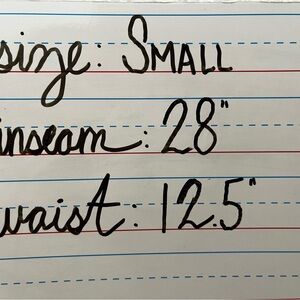 size: SMALL
inseam: 28"
waist: 12.5"